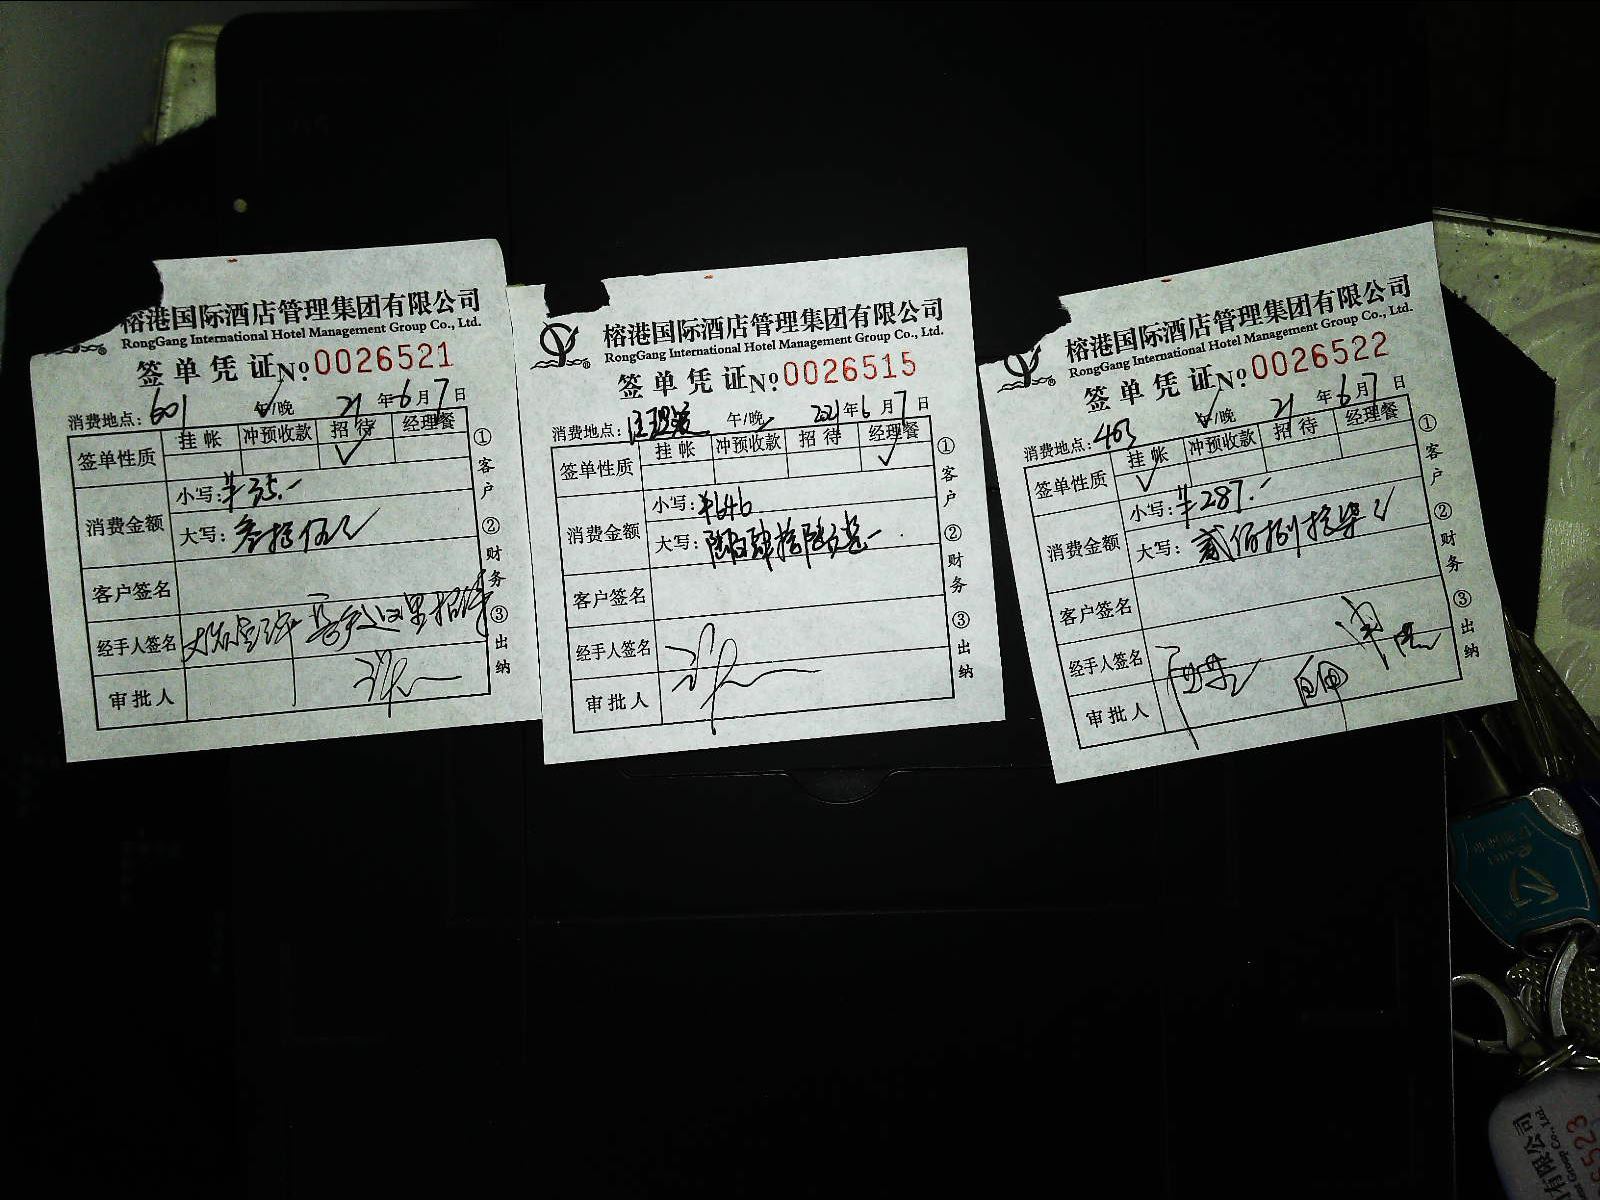 榕港国际酒店管理集团有限公司
RongGang International Hotel Management Group Co., Ltd.
签单凭证 No. 0026521
消费地点: 601 午/晚 21年6月7日
签单性质 挂帐 冲预收款 招待 经理餐
✓
消费金额 小写: ¥35.-
大写: 叁拾伍元
客户签名
经手人签名
审批人
①客户 ②财务 ③出纳
榕港国际酒店管理集团有限公司
RongGang International Hotel Management Group Co., Ltd.
签单凭证 No. 0026515
消费地点: 午/晚 2021年6月7日
签单性质 挂帐 冲预收款 招待 经理餐
✓
消费金额 小写: ¥646
大写: 陆佰肆拾陆元整
客户签名
经手人签名
审批人
①客户 ②财务 ③出纳
榕港国际酒店管理集团有限公司
RongGang International Hotel Management Group Co., Ltd.
签单凭证 No. 0026522
消费地点: 403 午/晚 21年6月7日
签单性质 挂帐 冲预收款 招待 经理餐
✓
消费金额 小写: ¥287.-
大写: 贰佰捌拾柒元
客户签名
经手人签名
审批人
①客户 ②财务 ③出纳
有限公司
Co., Ltd.
6523